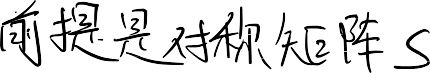 前提是对称矩阵S